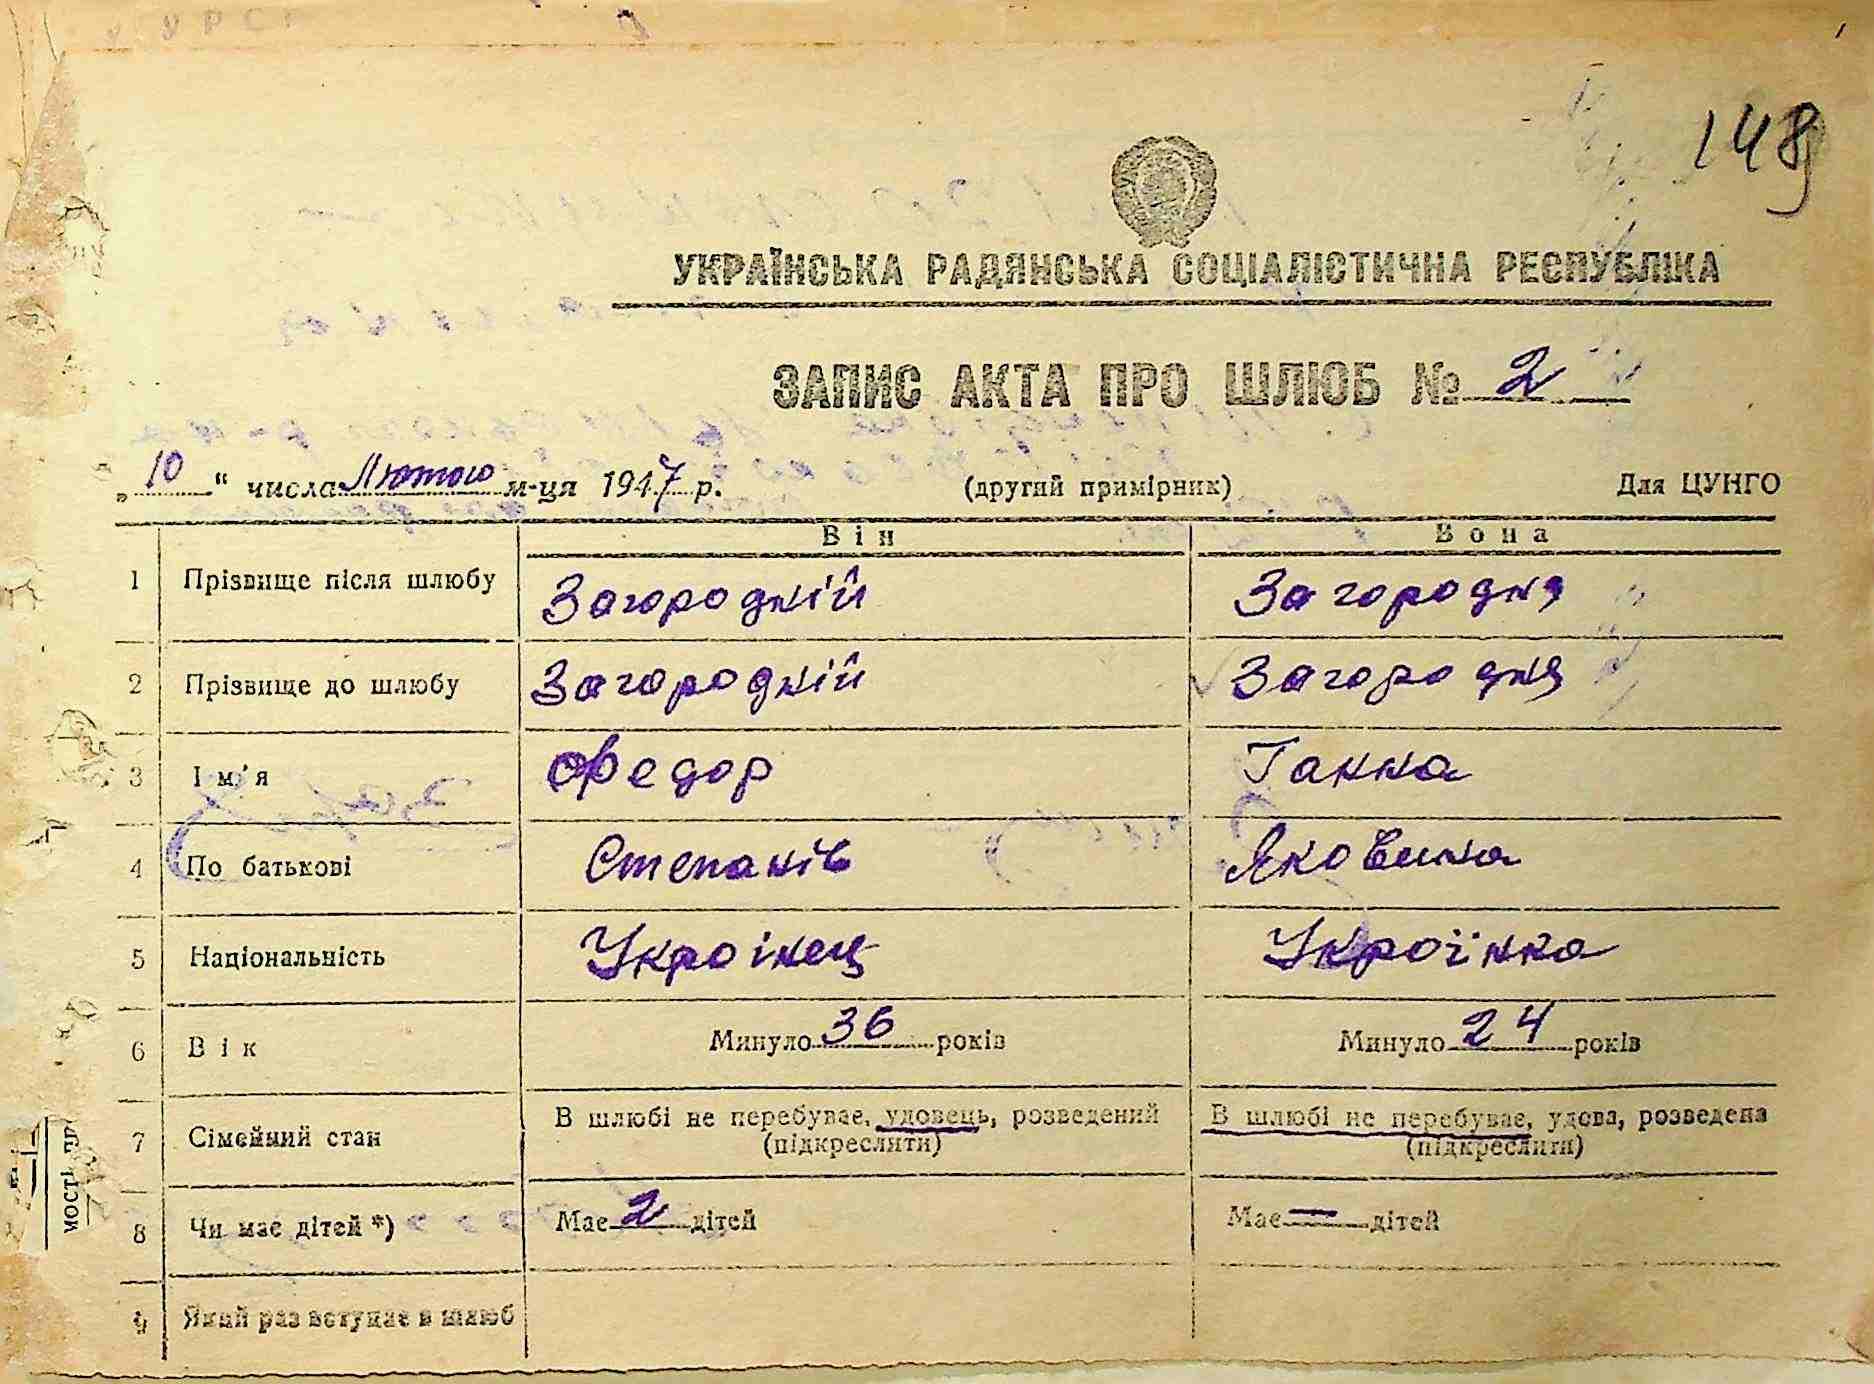 148
УКРАЇНСЬКА РАДЯНСЬКА СОЦІАЛІСТИЧНА РЕСПУБЛІКА
ЗАПИС АКТА ПРО ШЛЮБ № 2
„ 10 “ числа Лютого м-ця 1947 р. (другий примірник) Для ЦУНГО
Він Вона
1 Прізвище після шлюбу Загородній Загородня
2 Прізвище до шлюбу Загородній Загородня
3 Ім'я Федор Ганна
4 По батькові Степанів Яковина
5 Національність Украінець Українка
6 Вік Минуло 36 років Минуло 24 років
7 Сімейний стан В шлюбі не перебуває, удовець, розведений В шлюбі не перебуває, удова, розведена
(підкреслити) (підкреслити)
8 Чи має дітей *) Має 2 дітей Має — дітей
9 Який раз вступає в шлюб